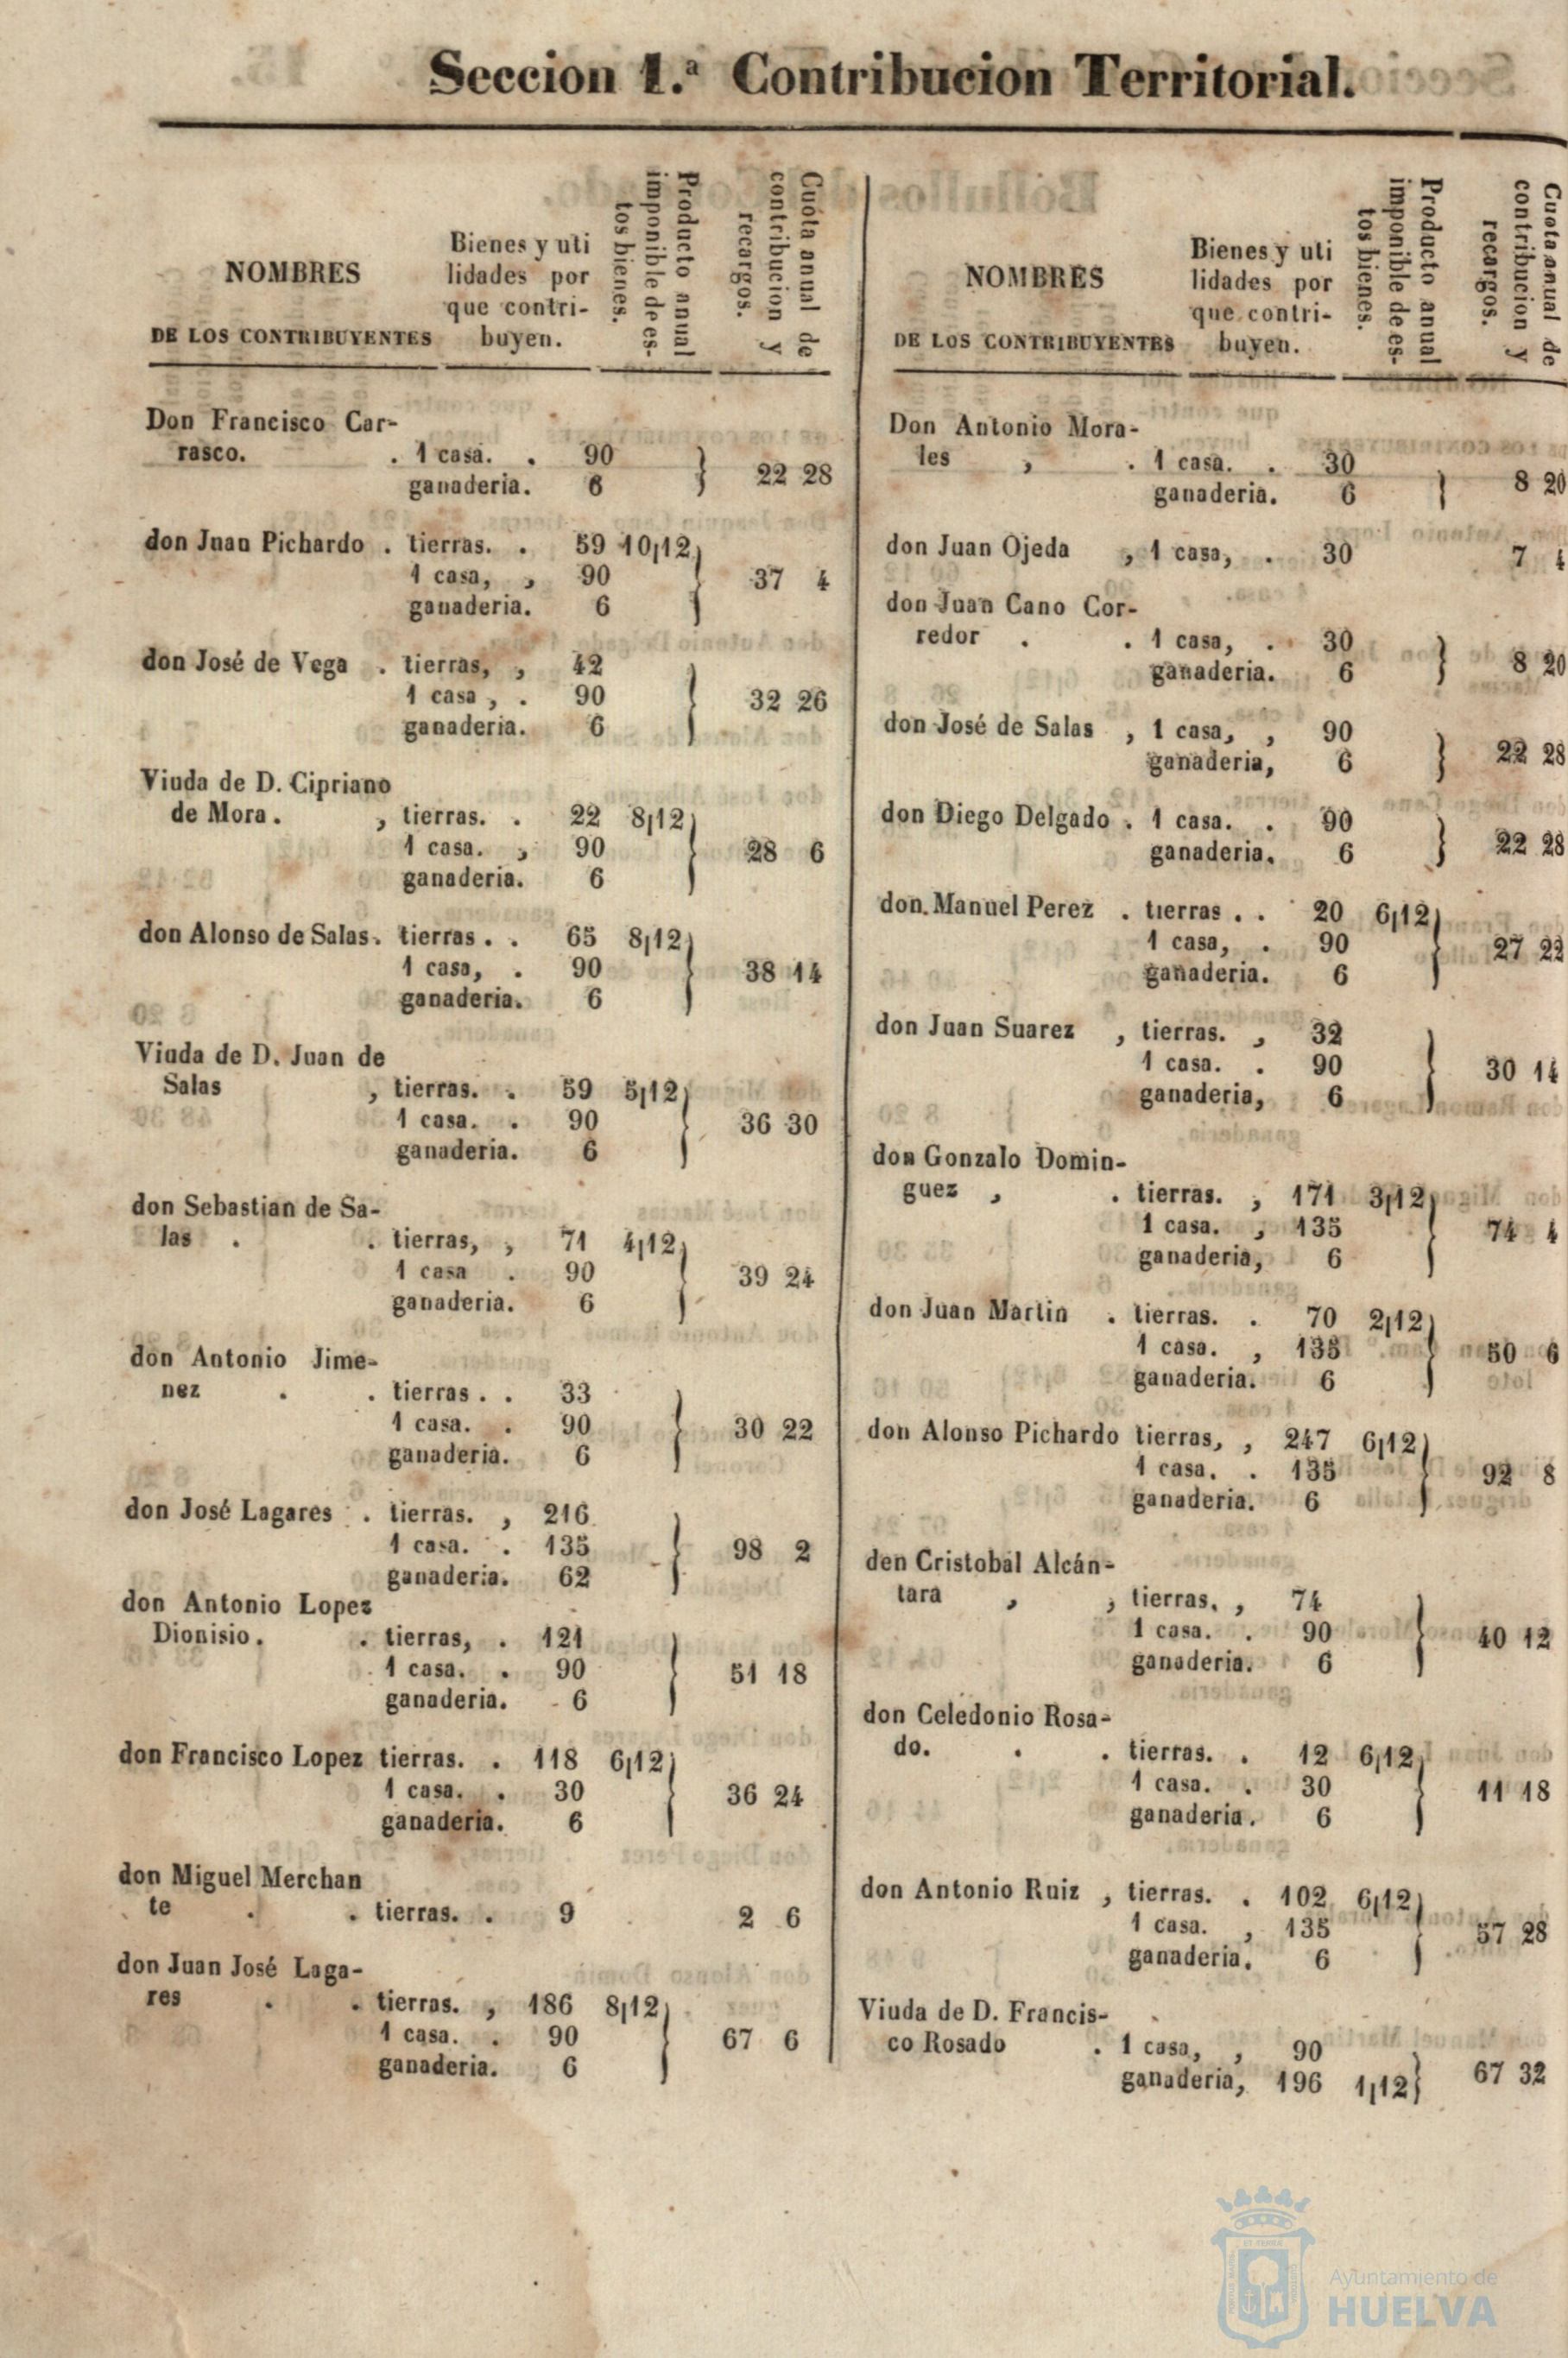 Seccion 1.ª Contribucion Territorial.
NOMBRES
DE LOS CONTRIBUYENTES
Bienes y uti
lidades por
que contri-
buyen.
Producto anual
imponible de es-
tos bienes.
Cuota anual de
contribucion y
recargos.
Don Francisco Car-
rasco. . 1 casa. . 90
ganaderia. 6 } 22 28
don Juan Pichardo . tierras. . 59 10/12
1 casa, , 90 } 37 4
ganaderia. 6
don José de Vega . tierras, , 42
1 casa , . 90 } 32 26
ganaderia. 6
Viuda de D. Cipriano
de Mora. , tierras. . 22 8/12
1 casa. , 90 } 28 6
ganaderia. 6
don Alonso de Salas. tierras . . 65 8/12
1 casa, . 90 } 38 14
ganaderia. 6
Viuda de D. Juan de
Salas , tierras. . 59 5/12
1 casa. . 90 } 36 30
ganaderia. 6
don Sebastian de Sa-
las . . tierras, , 71 4/12
1 casa . 90 } 39 24
ganaderia. 6
don Antonio Jime-
nez . . tierras . . 33
1 casa. . 90 } 30 22
ganaderia. 6
don José Lagares . tierras. , 216
1 casa. . 135 } 98 2
ganaderia. 62
don Antonio Lopez
Dionisio. . tierras, . 121
1 casa. . 90 } 51 18
ganaderia. 6
don Francisco Lopez tierras. . 118 6/12
1 casa. . 30 } 36 24
ganaderia. 6
don Miguel Merchan
te . . tierras. . 9 2 6
don Juan José Laga-
res . . tierras. , 186 8/12
1 casa. . 90 } 67 6
ganaderia. 6
NOMBRES
DE LOS CONTRIBUYENTES
Bienes y uti
lidades por
que contri-
buyen.
Producto anual
imponible de es-
tos bienes.
Cuota anual de
contribucion y
recargos.
Don Antonio Mora-
les , . 1 casa. . 30
ganaderia. 6 } 8 20
don Juan Ojeda , 1 casa, . 30 7 4
don Juan Cano Cor-
redor . . 1 casa, . 30
ganaderia. 6 } 8 20
don José de Salas , 1 casa, , 90
ganaderia, 6 } 22 28
don Diego Delgado . 1 casa. . 90
ganaderia. 6 } 22 28
don Manuel Perez . tierras . . 20 6/12
1 casa, . 90 } 27 22
ganaderia. 6
don Juan Suarez , tierras. , 32
1 casa. . 90 } 30 14
ganaderia, 6
don Gonzalo Domin-
guez , . tierras. , 171 3/12
1 casa. , 135 } 74 4
ganaderia, 6
don Juan Martin . tierras. . 70 2/12
1 casa. , 135 } 50 6
ganaderia. 6
don Alonso Pichardo tierras, , 247 6/12
1 casa. . 135 } 92 8
ganaderia. 6
den Cristobal Alcán-
tara , , tierras. , 74
1 casa. . 90 } 40 12
ganaderia. 6
don Celedonio Rosa-
do. . . tierras. . 12 6/12
1 casa. . 30 } 11 18
ganaderia. 6
don Antonio Ruiz , tierras. . 102 6/12
1 casa. , 135 } 57 28
ganaderia, 6
Viuda de D. Francis-
co Rosado . 1 casa, , 90
ganaderia, 196 1/12 } 67 32
Ayuntamiento de
HUELVA